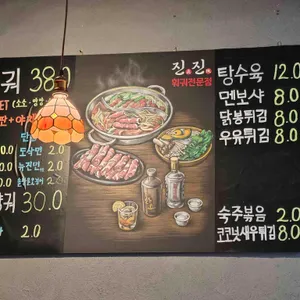 진진
훠궈전문점
궈 38.0
ET (소스·
판+야
도삭면 2.0
2.0
궈 30.0
2.0
탕수육 12.0
멘보샤 8.0
닭봉튀김 8.0
우유튀김 8.0
숙주볶음 2.0
코코넛새우튀김 8.0